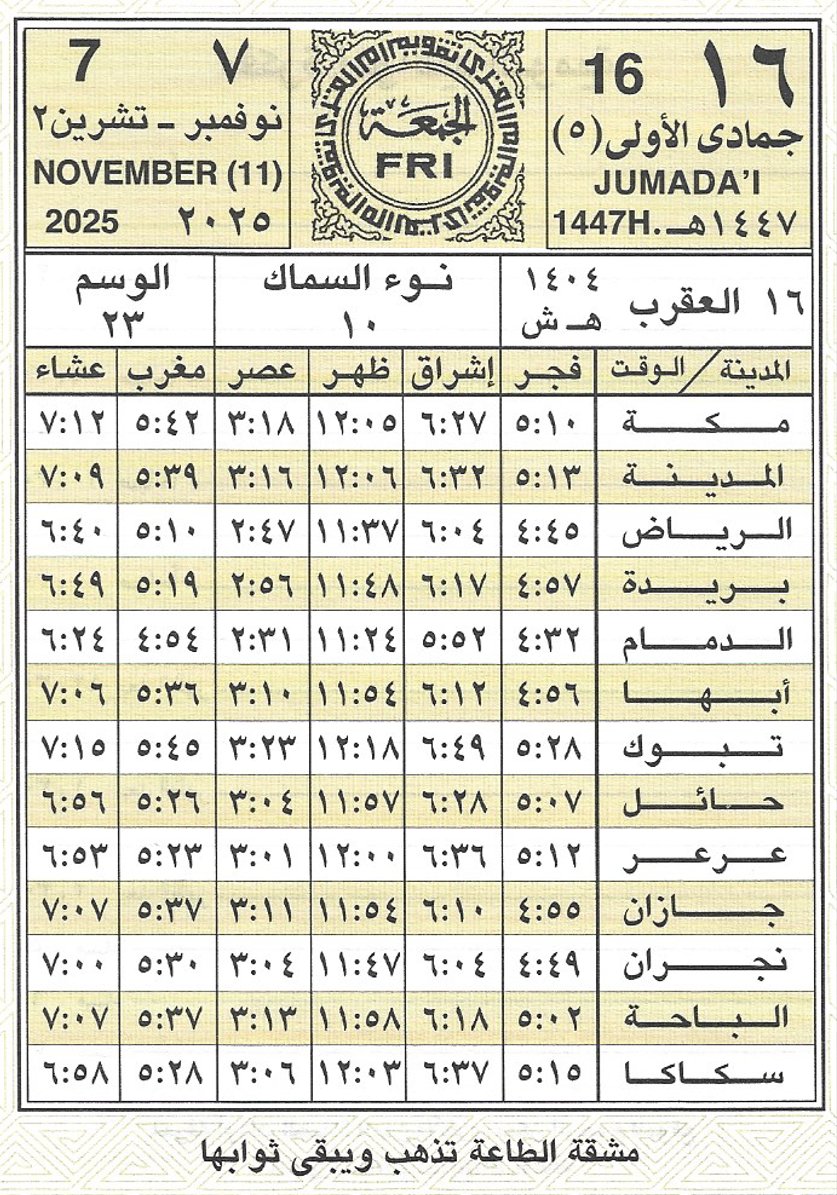 7 ٧
نوفمبر ـ تشرين٢
NOVEMBER (11)
2025 ٢٠٢٥
تقويم أم القرى
الجمعة
FRI
16 ١٦
جمادى الأولى (٥)
JUMADA'I
1447H. ١٤٤٧هـ
١٦ العقرب ١٤٠٤ هـ ش
نوء السماك ١٠
الوسم ٢٣
المدينة / الوقت فجر إشراق ظهر عصر مغرب عشاء
مكة ٥:١٠ ٦:٢٧ ١٢:٠٥ ٣:١٨ ٥:٤٢ ٧:١٢
المدينة ٥:١٣ ٦:٣٢ ١٢:٠٦ ٣:١٦ ٥:٣٩ ٧:٠٩
الرياض ٤:٤٥ ٦:٠٤ ١١:٣٧ ٢:٤٧ ٥:١٠ ٦:٤٠
بريدة ٤:٥٧ ٦:١٧ ١١:٤٨ ٢:٥٦ ٥:١٩ ٦:٤٩
الدمام ٤:٣٢ ٥:٥٢ ١١:٢٤ ٢:٣١ ٤:٥٤ ٦:٢٤
أبها ٤:٥٦ ٦:١٢ ١١:٥٤ ٣:١٠ ٥:٣٦ ٧:٠٦
تبوك ٥:٢٨ ٦:٤٩ ١٢:١٨ ٣:٢٣ ٥:٤٥ ٧:١٥
حائل ٥:٠٧ ٦:٢٨ ١١:٥٧ ٣:٠٤ ٥:٢٦ ٦:٥٦
عرعر ٥:١٢ ٦:٣٦ ١٢:٠٠ ٣:٠١ ٥:٢٣ ٦:٥٣
جازان ٤:٥٥ ٦:١٠ ١١:٥٤ ٣:١١ ٥:٣٧ ٧:٠٧
نجران ٤:٤٩ ٦:٠٤ ١١:٤٧ ٣:٠٤ ٥:٣٠ ٧:٠٠
الباحة ٥:٠٢ ٦:١٨ ١١:٥٨ ٣:١٣ ٥:٣٧ ٧:٠٧
سكاكا ٥:١٥ ٦:٣٧ ١٢:٠٣ ٣:٠٦ ٥:٢٨ ٦:٥٨
مشقة الطاعة تذهب ويبقى ثوابها